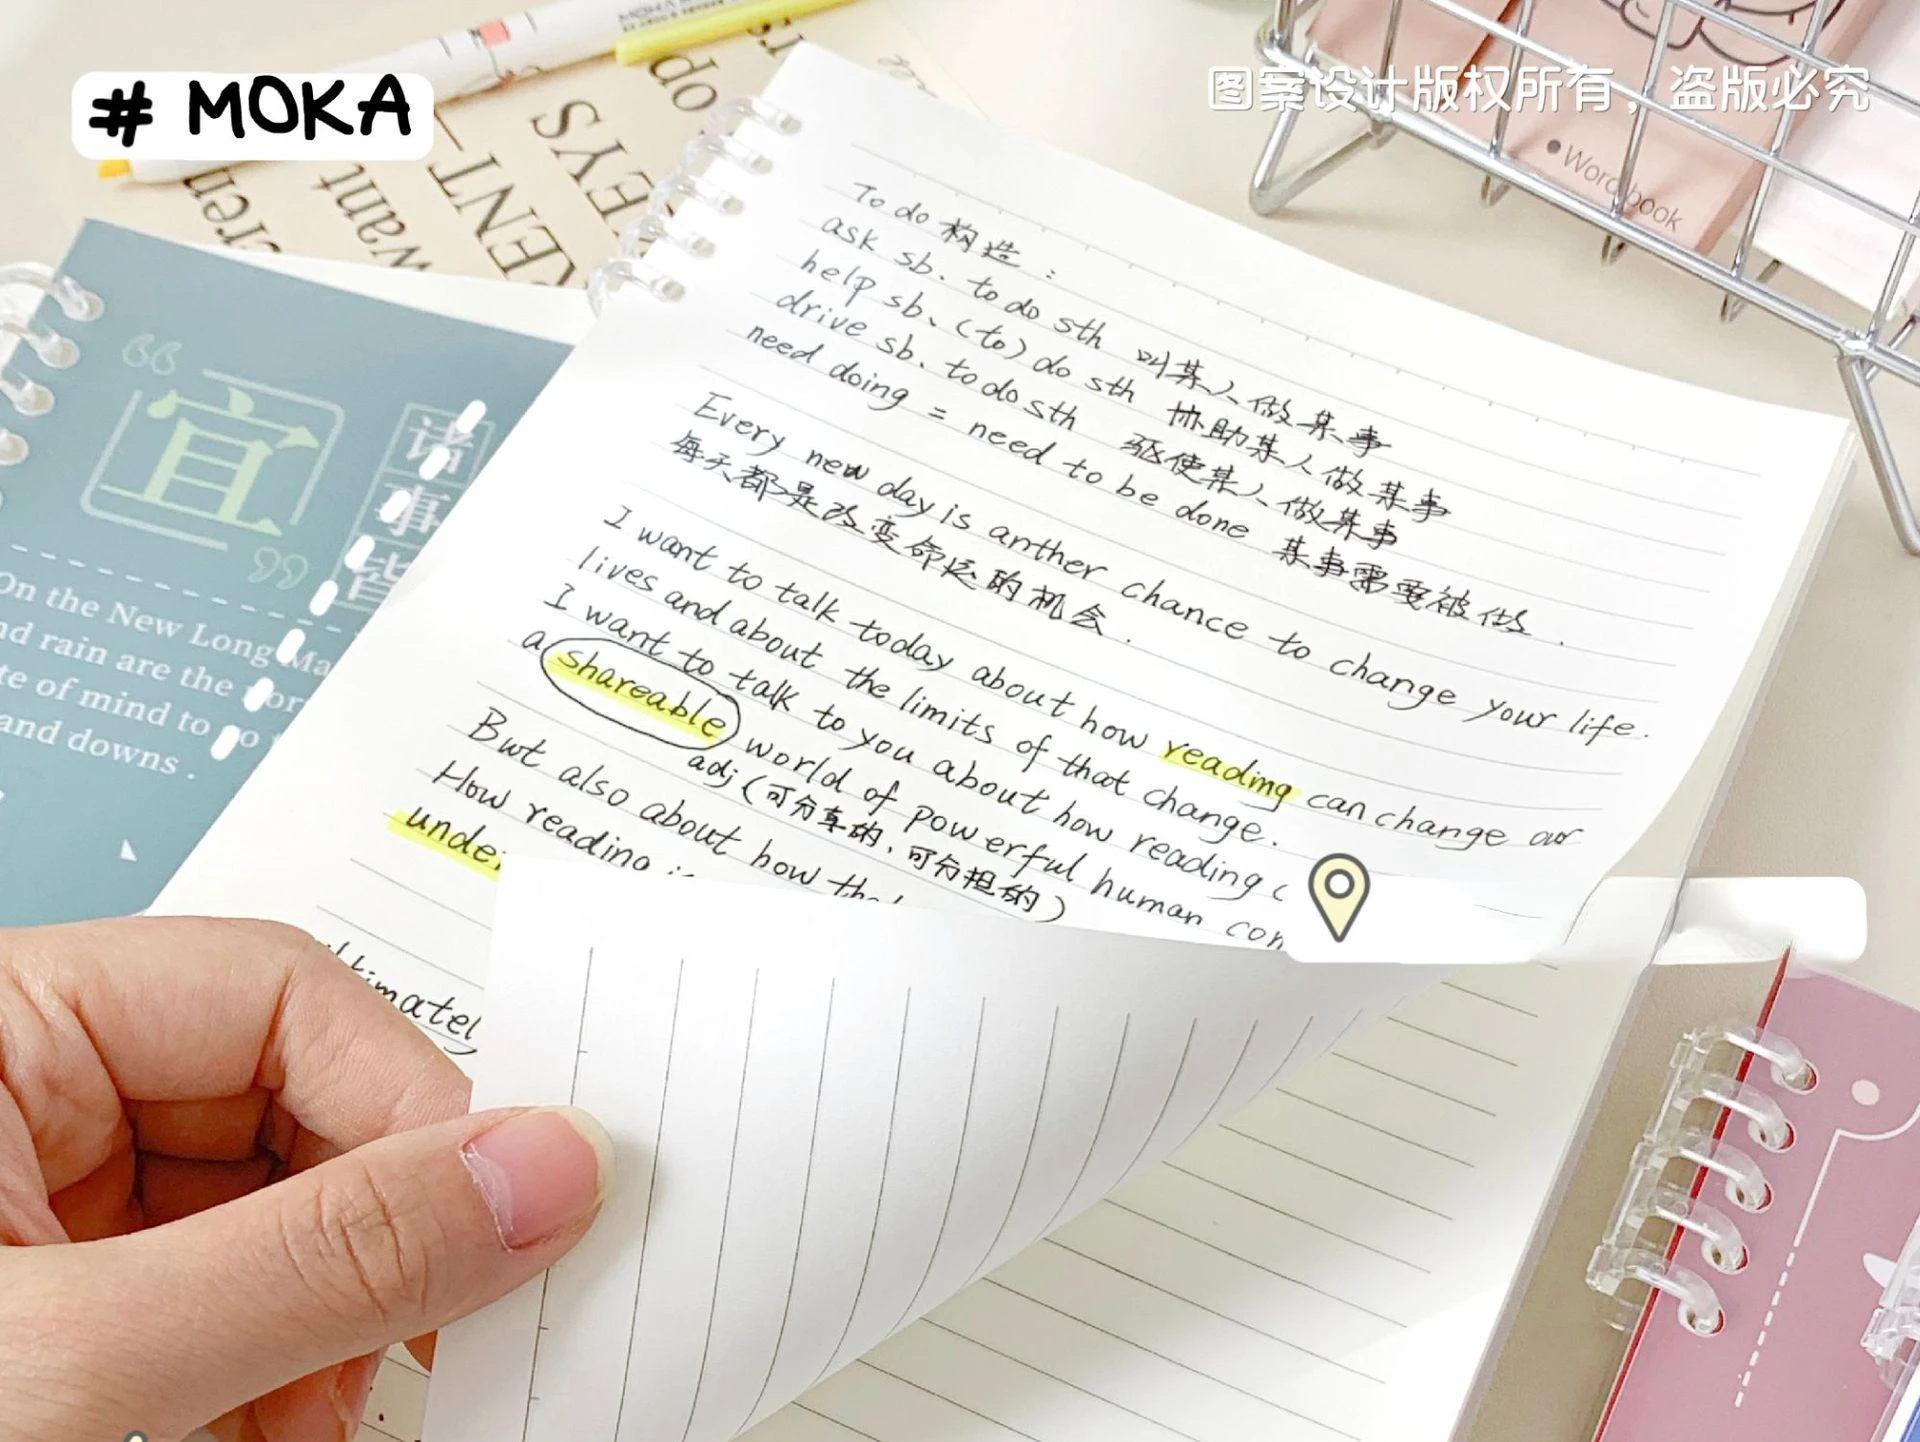 # MOKA
图案设计版权所有，盗版必究
Wordbook
want
KEYS
op
宜
诸
事
皆
On the New Long Ma
nd rain are the
te of mind to
and downs.
To do 构造：
ask sb. to do sth 叫某人做某事
help sb、(to) do sth 协助某人做某事
drive sb. to do sth 驱使某人做某事
need doing = need to be done 某事需要被做.
Every new day is anther chance to change your life.
每天都是改变命运的机会.
I want to talk today about how reading can change our
lives and about the limits of that change.
I want to talk to you about how reading c
a shareable world of powerful human con
adj (可分享的、可分担的)
But also about how that
How reading is
under
ltimatel